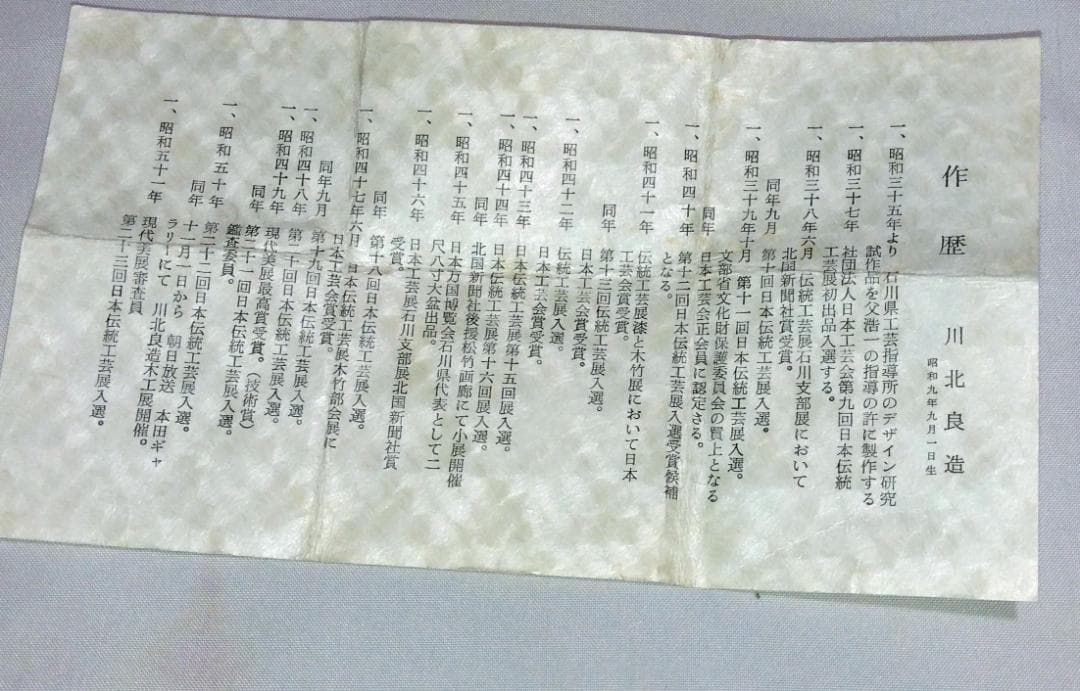 作歴　川北良造
昭和九年九月一日生
一、昭和三十五年より　石川県工芸指導所のデザイン研究
試作品を父浩一の指導の許に製作する
一、昭和三十七年　社団法人日本工芸会第九回日本伝統
工芸展初出品入選する。
一、昭和三十八年六月　伝統工芸展石川支部展において
北国新聞社賞受賞。
同年九月　第十回日本伝統工芸展入選。
一、昭和三十九年十月　第十一回日本伝統工芸展入選。
文部省文化財保護委員会の買上となる
同年　日本工芸会正会員に認定さる。
一、昭和四十年　第十二回日本伝統工芸展入選受賞候補
となる。
一、昭和四十一年　伝統工芸展漆と木竹展において日本
工芸会賞受賞。
同年　第十三回伝統工芸展入選。
日本工芸会賞受賞。
一、昭和四十二年　伝統工芸展入選。
日本工芸会賞受賞。
一、昭和四十三年　日本伝統工芸展第十五回展入選。
一、昭和四十四年　日本伝統工芸展第十六回展入選。
同年　北国新聞社後援松竹画廊にて小展開催
一、昭和四十五年　日本万国博覧会石川県代表として二
尺八寸大盆出品。
一、昭和四十六年　日本工芸展石川支部展北国新聞社賞
受賞。
同年　第十八回日本伝統工芸展入選。
一、昭和四十七年六月　日本伝統工芸展木竹部会展に
日本工芸会賞受賞。
同年九月　第十九回日本伝統工芸展入選。
一、昭和四十八年　第二十回日本伝統工芸展入選。
一、昭和四十九年　現代美展最高賞受賞。（技術賞）
同年　第二十一回日本伝統工芸展入選。
鑑査委員。
一、昭和五十年　第二十二回日本伝統工芸展入選。
同年　十一月一日から　朝日放送　本田ギャ
ラリーにて　川北良造木工展開催。
一、昭和五十一年　現代美展審査員
第二十三回日本伝統工芸展入選。